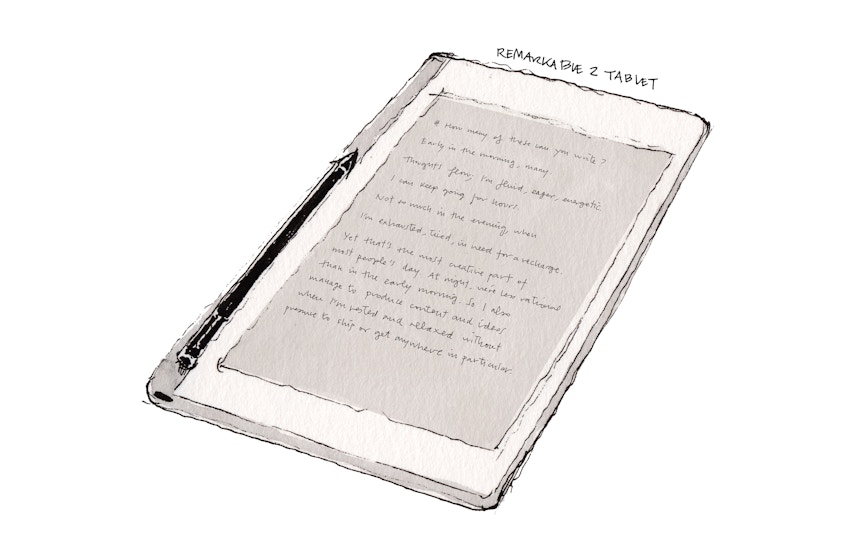 REMARKABLE 2 TABLET
# How many of these can you write?
Early in the morning, many
Thoughts flow; I'm fluid, eager, energetic
I can keep going for hours.
Not so much in the evening, when
I'm exhausted, tired, in need for a recharge.
Yet that's the most creative part of
most people's day. At night, we're less rational
than in the early morning. So I also
manage to produce content and ideas
when I'm rested and relaxed without
pressure to ship or get anywhere in particular.